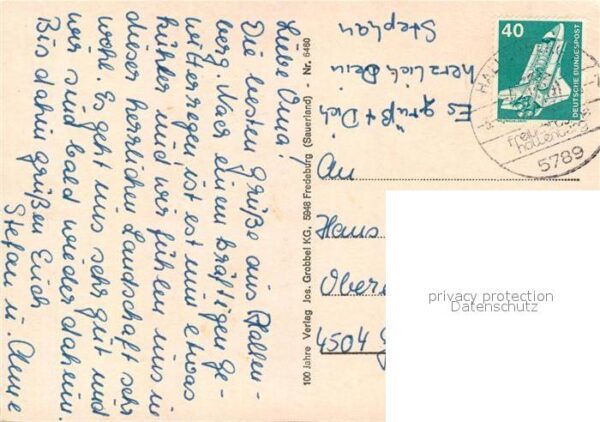 Liebe Oma!
Die besten Grüße aus Hallen-
berg. Nach einem kräftigen Ge-
witterregen ist es nun etwas
kühler und wir fühlen uns in
dieser herrlichen Landschaft sehr
wohl. Es geht uns sehr gut und
wir sind bald wieder daheim.
Bis dahin grüßen Euch
Stefan u. Anne
Es grüßt Dich
herzlich Dein
Stephan
100 Jahre Verlag Jos. Grobbel KG, 5948 Fredeburg (Sauerland) - Nr. 6460
40
DEUTSCHE BUNDESPOST
5789
An
Hans
Ober
4504 G
privacy protection
Datenschutz